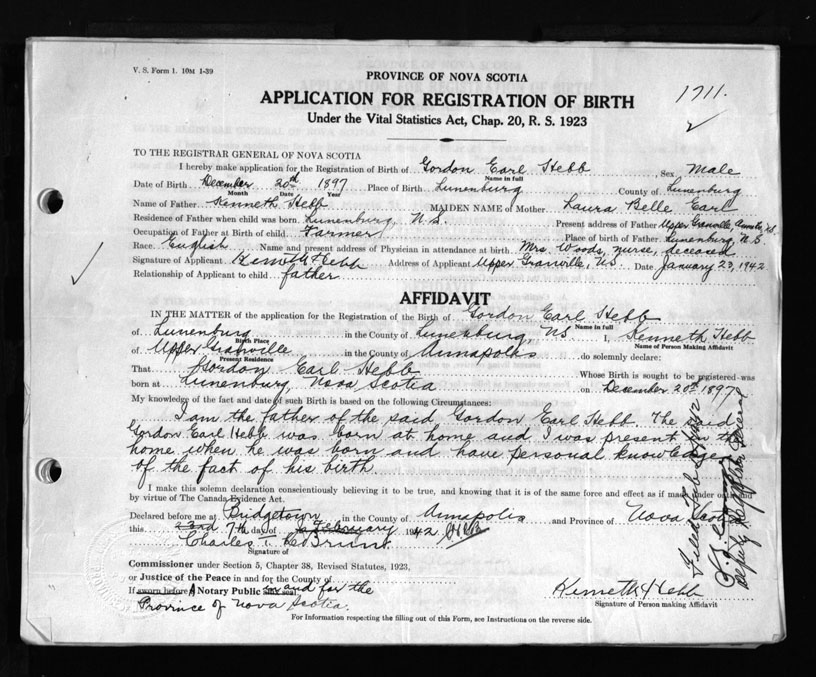 V. S. Form 1. 10M 1-39
PROVINCE OF NOVA SCOTIA
APPLICATION FOR REGISTRATION OF BIRTH
Under the Vital Statistics Act, Chap. 20, R. S. 1923
1711.
TO THE REGISTRAR GENERAL OF NOVA SCOTIA
I hereby make application for the Registration of Birth of Gordon Earl Hebb Sex Male
Name in full
Date of Birth December 20th 1897 Place of Birth Lunenburg County of Lunenburg
Month Date Year
Name of Father Kenneth Hebb MAIDEN NAME of Mother Laura Belle Earl
Residence of Father when child was born Lunenburg, N.S. Present address of Father Upper Granville, Anna. Co., N.S.
Occupation of Father at Birth of child Farmer Place of birth of Father Lunenburg, N.S.
Race English Name and present address of Physician in attendance at birth Mrs. Woods, nurse, deceased
Signature of Applicant Kenneth Hebb Address of Applicant Upper Granville, N.S. Date January 23, 1942
Relationship of Applicant to child father
AFFIDAVIT
IN THE MATTER of the application for the Registration of the Birth of Gordon Earl Hebb
Name in full
of Lunenburg in the County of Lunenburg, NS I, Kenneth Hebb
Birth Place Name of Person Making Affidavit
of Upper Granville in the County of Annapolis do solemnly declare:
Present Residence
That Gordon Earl Hebb Whose Birth is sought to be registered was
born at Lunenburg, Nova Scotia on December 20th 1897
My knowledge of the fact and date of such Birth is based on the following Circumstances:
I am the father of the said Gordon Earl Hebb. The said
Gordon Earl Hebb was born at home and I was present in the
home when he was born and have personal knowledge
of the fact of his birth
I make this solemn declaration conscientiously believing it to be true, and knowing that it is of the same force and effect as if made under oath and
by virtue of The Canada Evidence Act.
Declared before me at Bridgetown in the County of Annapolis and Province of Nova Scotia
this 23rd 7th day of February 1942
Signature of
Commissioner under Section 5, Chapter 38, Revised Statutes, 1923,
or Justice of the Peace in and for the County of
If sworn before A Notary Public use seal in and for the
Province of Nova Scotia.
Kenneth Hebb
Signature of Person making Affidavit
For Information respecting the filling out of this Form, see Instructions on the reverse side.
Deputy Registrar General